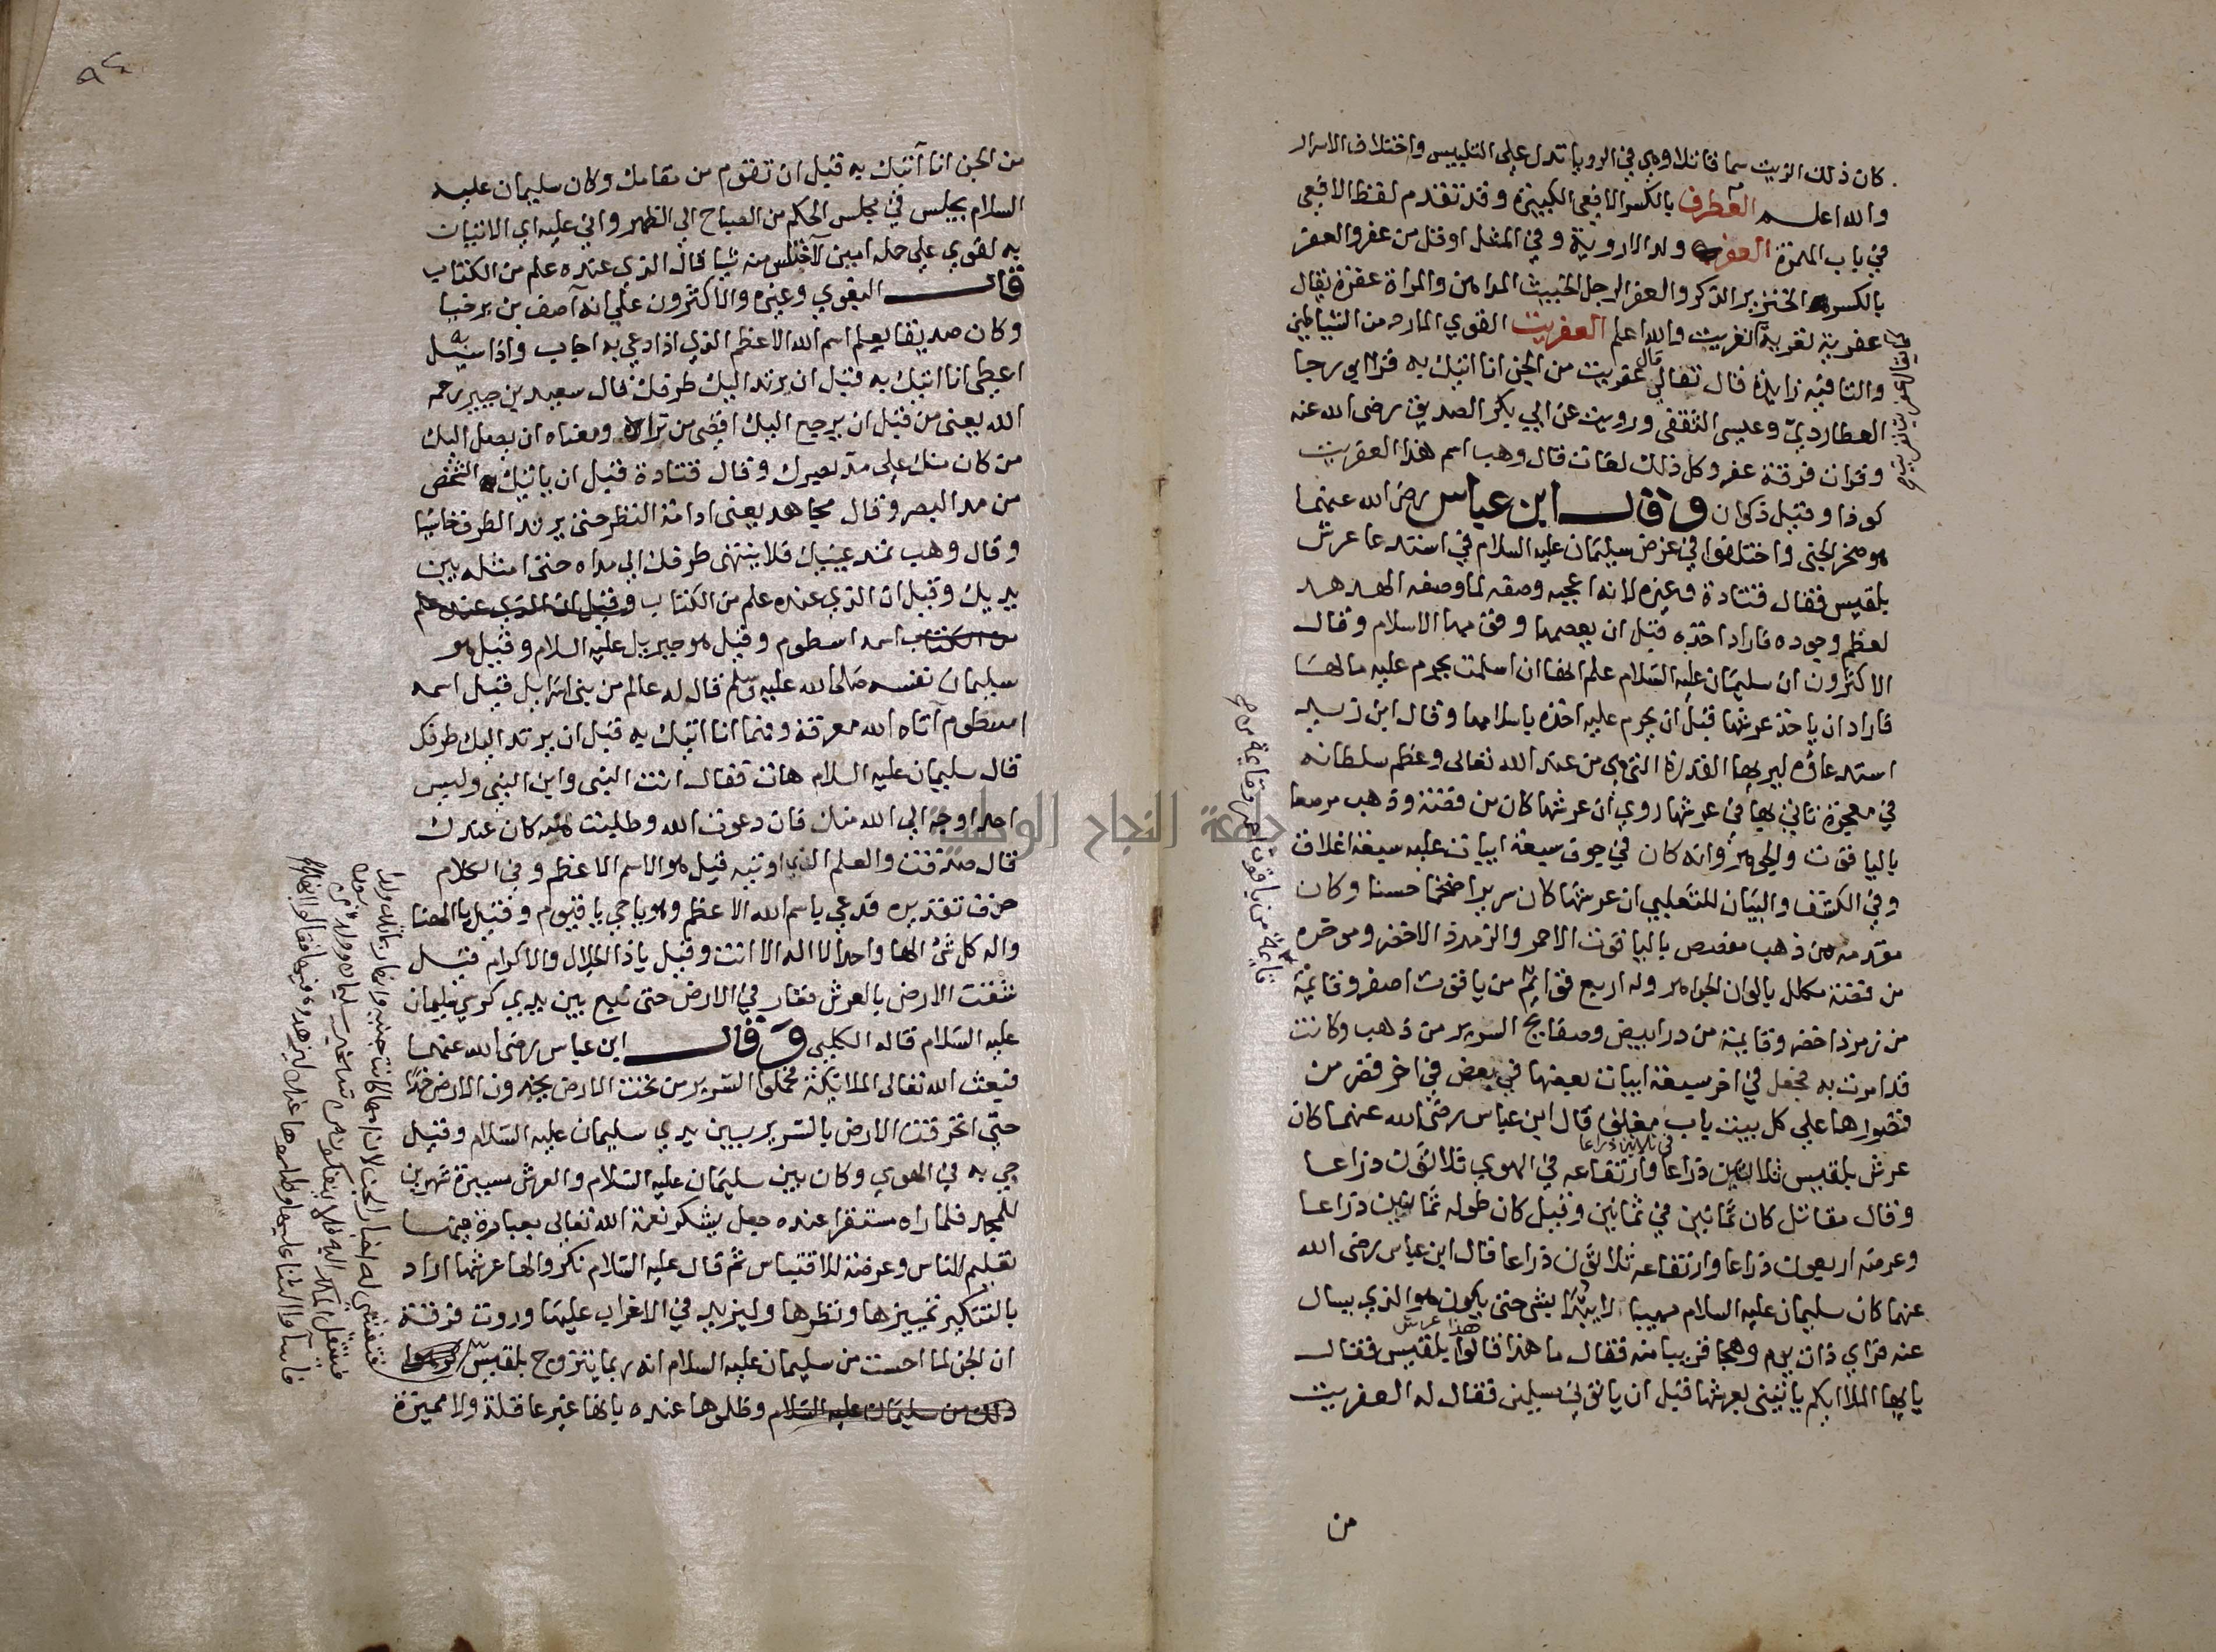 كان ذلك الزيت سما قاتلا وهي في الرويا تدل علي التلبيس واختلاف الاسرار
والله اعلم العطرف بالكسر الافعي الكبيرة وقد تقدم لفظ الافعي
في باب الهمزة العفر ولد الاروية وفي المثل اوقل من عفر والعفر
بالكسر الخنزير الذكر والعفر الرجل الخبيث الداهن والمراة عفرة يقال
عفرية نفرية العفريت القوي المارد من الشياطين
والتا فيه زايدة قال تعالي قال عفريت من الجن انا اتيك به قرا ابي رجا
العطاردي وعيسي الثقفي ورويت عن ابي بكر الصديق رضي الله عنه
وقرات فرقة عفر وكل ذلك لغات قال وهب اسم هذا العفريت
كوذا وقيل ذكوان وقال ابن عباس رضي الله عنهما
هو صخر الجني واختلفوا في غرض سليمان عليه السلام في استدعا عرش
بلقيس فقال قتادة وغيره لانه اعجبه وصفه لما وصفه الهدهد
لعظم وجوده فاراد اخذه قبل ان يعصمها وقومها الاسلام وقال
الاكثرون ان سليمان عليه السلام علم انها ان اسلمت يحرم عليه مالها
فاراد ان ياخذ عرشها قبل ان يحرم عليه اخذه باسلامها وقال ابن زيد
استدعاؤه ليريها القدرة التي هي من عند الله تعالي وعظم سلطانه
في معجزة تاتي بها في عرشها روي ان عرشها كان من فضة وذهب مرصعا
بالياقوت والجوهر وانه كان في جوف سبعة ابيات عليه سبعة اغلاق
وفي الكشف والبيان للثعلبي ان عرشها كان سريرا ضخما حسنا وكان
مقدمه من ذهب مفصص بالياقوت الاحمر والزمرذ الاخضر وموخره
من فضة مكلل بالوان الجواهر وله اربع قوائم من ياقوت اصفر وقايمة
من زمرذ اخضر وقايمة من در ابيض وصفايح السرير من ذهب وكانت
قد امرت به فجعل في اخر سبعة ابيات بعضها في بعض في اخر قصر من
قصورها علي كل بيت باب مغلق قال ابن عباس رضي الله عنهما كان
عرش بلقيس ثلاثين ذراعا في ثلاثين ذراعا وارتفاعه في الهوي ثلاثون ذراعا
وقال مقاتل كان ثمانين في ثمانين وقيل كان طوله ثمانين ذراعا
وعرضه اربعون ذراعا وارتفاعه ثلاثون ذراعا قال ابن عباس رضي الله
عنهما كان سليمان عليه السلام مهيبا لا يبتدا بشي حتي يكون هو الذي يسال
عنه فراي ذات يوم وهجا قريبا منه فقال ما هذا قالوا هذا عرش بلقيس فقال
يايها الملا ايكم ياتيني بعرشها قبل ان ياتوني مسلمين فقال له العفريت
من
ويقال عفريت نفريت صح
قايمة من ياقوت احمر وقايمة من صح
٩٤
من الجن انا آتيك به قبل ان تقوم من مقامك وكان سليمان عليه
السلام يجلس في مجلس الحكم من الصباح الي الظهر واني عليه اي الاتيان
به لقوي علي حمله امين لا اختلس منه شيا قال الذي عنده علم من الكتاب
قال البغوي وغيره والاكثرون علي انه آصف بن برخيا
وكان صديقا يعلم اسم الله الاعظم الذي اذا دعي به اجاب واذا سيل به
اعطي انا اتيك به قبل ان يرتد اليك طرفك قال سعيد بن جبير رحمه
الله يعني من قبل ان يرجع اليك اقصي من تراه ومعناه ان يصل اليك
من كان منك علي مد بصرك وقال قتادة قبل ان ياتيك الشخص
من مد البصر وقال مجاهد يعني ادامة النظر حتي يرتد الطرف خاسيا
وقال وهب تمد عينيك فلا ينتهي طرفك الي مداه حتي امثله بين
يديك وقيل ان الذي عنده علم من الكتاب وقيل ان الذي عنده علم
من الكتاب اسمه اسطوم وقيل هو جبريل عليه السلام وقيل هو
سليمان نفسه صلي الله عليه وسلم قال له عالم من بني اسرايل قيل اسمه
اسطوم آتاه الله معرفة وفهما انا اتيك به قبل ان يرتد اليك طرفك
قال سليمان عليه السلام هات فقال انت النبي وابن النبي وليس
احد اوجه الي الله منك فان دعوت الله وطلبت اليه كان عندك
قال صدقت والعلم الذي اوتيه قيل هو الاسم الاعظم وفي الكلام
حذف تقديره فدعي باسم الله الاعظم وهو يا حي يا قيوم وقيل يا الهنا
واله كل شي الها واحدا لا اله الا انت وقيل يا ذا الجلال والاكرام قيل
شقت الارض بالعرش فغار في الارض حتي نبع بين يدي كرسي سليمان
عليه السلام قاله الكلبي وقال ابن عباس رضي الله عنهما
فبعث الله تعالي الملائكة فحملوا السرير من تحت الارض يخدون الارض خدا
حتي انخرقت الارض بالسرير بين يدي سليمان عليه السلام وقيل
جي به في الهوي وكان بين سليمان عليه السلام والعرش مسيرة شهرين
للمجد فلما راه مستقرا عنده جعل يشكر نعمة الله تعالي بعبادة فيها
تعليم للناس وعرضة للاقتباس ثم قال عليه السلام نكروا لها عرشها اراد
بالتنكير تمييزها ونظرها وليزيد في الاغراب عليها وروت فرقة
ان الجن لما احست من سليمان عليه السلام انه ربما يتزوج بلقيس
ذلك من سليمان عليه السلام وظلموها عنده بانها غير عاقلة ولا مميزة